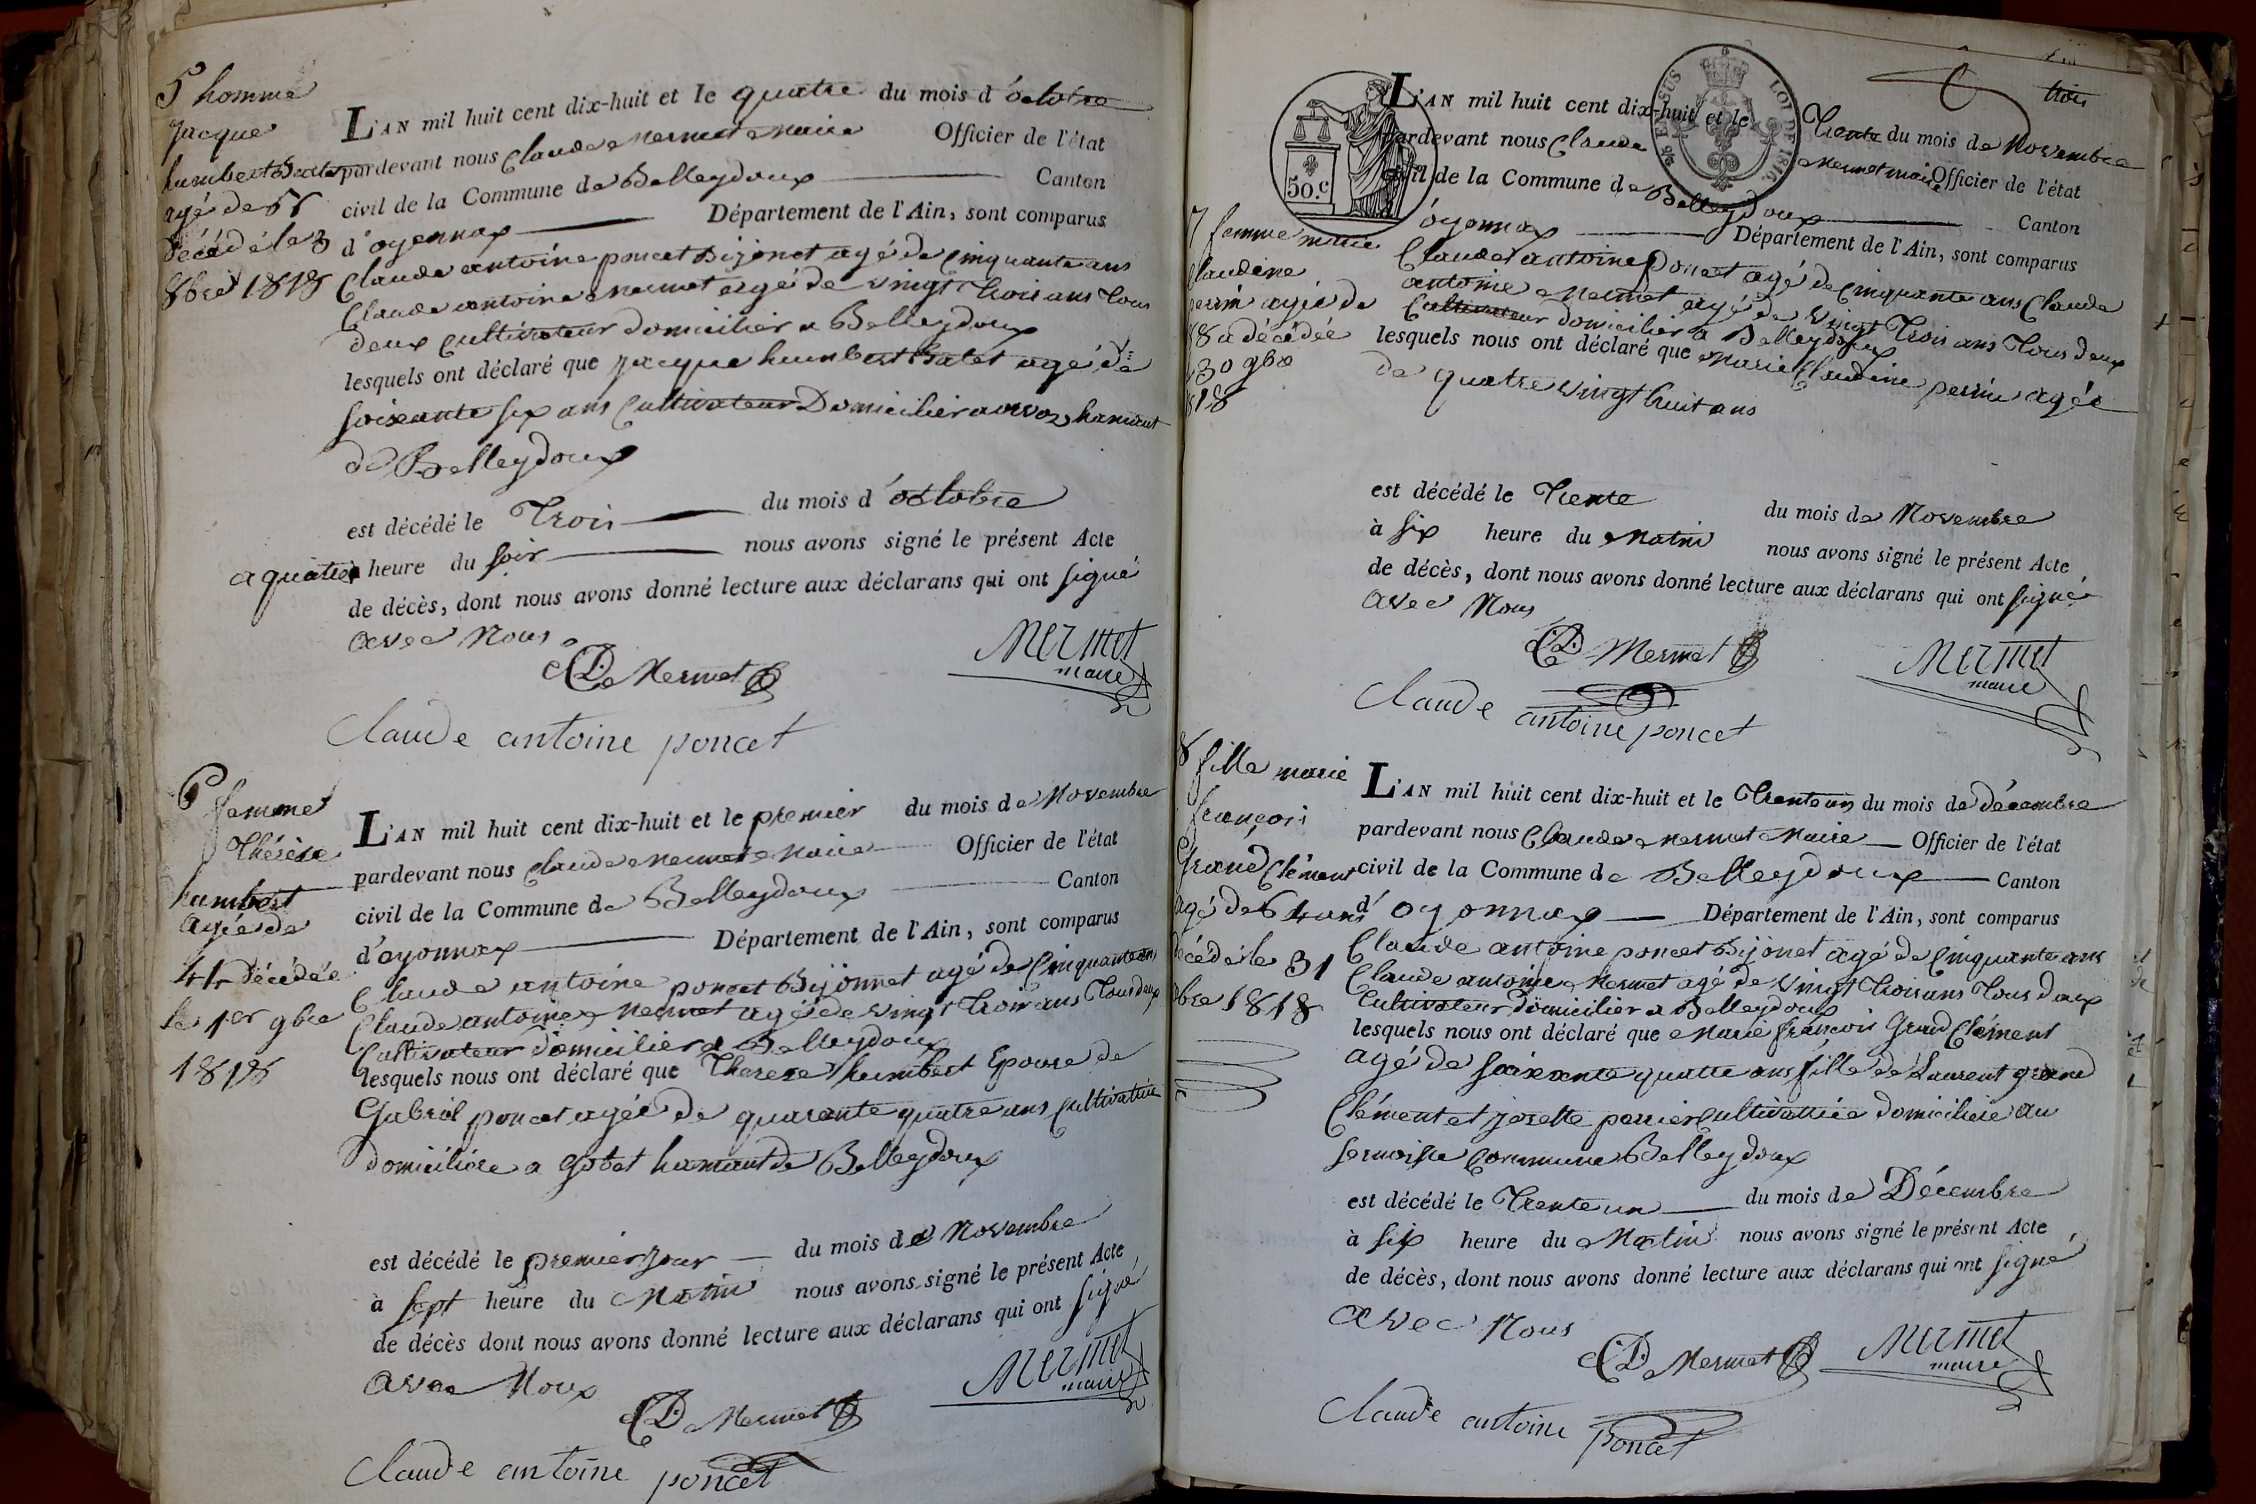 5 homme
Jacque
humbert Balet
agé de 55
décédé le 3
8bre 1818
L'AN mil huit cent dix-huit et le quatre du mois d'octobre
pardevant nous Claude Mermet Maire Officier de l'état
civil de la Commune de Belleydoux Canton
d'oyonnax Département de l'Ain, sont comparus
Claude antoine poncet Bijonet agé de Cinquante ans
Claude antoine Mermet agé de vingt trois ans tous
deux Cultivateur domicilier a Belleydoux
lesquels ont déclaré que Jacque humbert Balet agé de
soixante six ans Cultivateur Domicilier a hamaut
de Belleydoux
est décédé le Trois du mois d'octobre
a quatre heure du soir nous avons signé le présent Acte
de décès, dont nous avons donné lecture aux déclarans qui ont signé
avec Nous
CD Mermet
Mermet
maire
Claude antoine poncet
6 femme
Thérèse
humbert
agée de
44 décédée
le 1er 9bre
1818
L'AN mil huit cent dix-huit et le premier du mois de Novembre
pardevant nous Claude Mermet Maire Officier de l'état
civil de la Commune de Belleydoux Canton
d'oyonnax Département de l'Ain, sont comparus
Claude antoine poncet Bijonnet agé de Cinquante ans
Claude antoine Mermet agé de vingt trois ans Tous deux
Cultivateur domicilier a Belleydoux
lesquels nous ont déclaré que Therese humbert Epouse de
Gabriel poncet agée de quarante quatre ans Cultivatrice
domiciliére a Gobet hamaut de Belleydoux
est décédé le premier jour du mois de Novembre
à sept heure du Matin nous avons signé le présent Acte
de décès dont nous avons donné lecture aux déclarans qui ont signé
avec Nous
CD Mermet
Mermet
maire
Claude antoine poncet
trois
50.c
LOI DE 1816
7 femme marie
Claudine
perrin agée de
88 a décédée
30 9bre
1818
L'AN mil huit cent dix-huit et le Trente du mois de Novembre
pardevant nous Claude Mermet maire Officier de l'état
civil de la Commune de Belleydoux Canton
d'oyonnax Département de l'Ain, sont comparus
Claude antoine Poncet agé de Cinquante ans Claude
antoine Mermet agé de vingt Trois ans Tous deux
Cultivateur domicilier a Belleydoux
lesquels nous ont déclaré que Marie Claudine perrin agée
de quatre vingt huit ans
est décédé le Trente du mois de Novembre
à six heure du Matin nous avons signé le présent Acte
de décès, dont nous avons donné lecture aux déclarans qui ont signé
avec Nous
CD Mermet
Mermet
maire
Claude antoine poncet
8 fille marie
françois
Grand Clément
agé de 64 ans
décédé le 31
bre 1818
L'AN mil huit cent dix-huit et le Trente un du mois de décembre
pardevant nous Claude Mermet Maire Officier de l'état
civil de la Commune de Belleydoux Canton
d'oyonnax Département de l'Ain, sont comparus
Claude antoine poncet Bijonet agé de Cinquante ans
Claude antoine Mermet agé de vingt Trois ans Tous deux
Cultivateur Domicilier a Belleydoux
lesquels nous ont déclaré que Marie françois Grand Clément
agé de soixante quatre ans fille de Laurent grand
Clément et josette perrier Cultivatrice domiciliére au
Commune Belleydoux
est décédé le Trente un du mois de Décembre
à six heure du Matin nous avons signé le présent Acte
de décès, dont nous avons donné lecture aux déclarans qui ont signé
avec Nous
CD Mermet
Mermet
maire
Claude antoine poncet